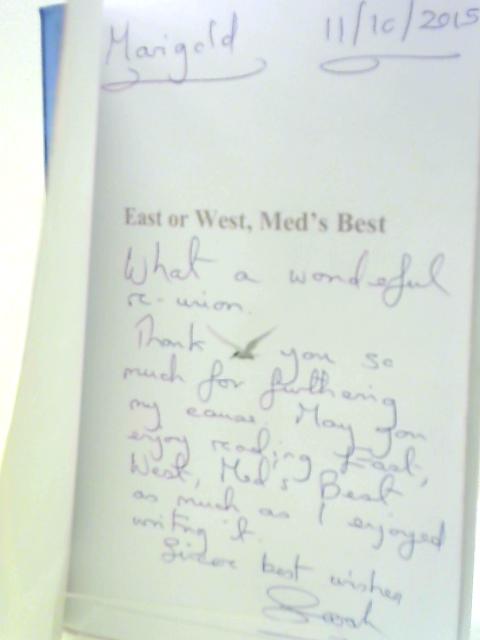 Marigold 11/10/2015
East or West, Med's Best
What a wonderful
re-union.
Thank you so
much for furthering
my cause. May you
enjoy reading East,
West, Med's Best
as much as I enjoyed
writing it.
Sincere best wishes
Sarah